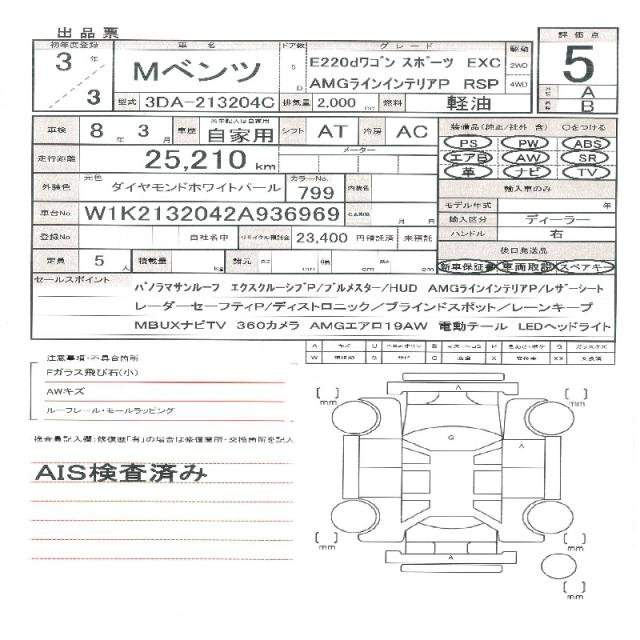 出品票
初年度登録 車名 ドア数 グレード 駆動 評価点
3年 Mベンツ 5 E220dワゴン スポーツ EXC 2WD 5
3 D AMGラインインテリアP RSP 4WD
A
B
型式 3DA-213204C 排気量 2,000 燃料 軽油
車検 8年3月 車歴 自家用 シフト AT 冷房 AC
装備品(純正/社外 含) ○をつける
PS PW ABS
エアB AW SR
革 ナビ TV
走行距離 25,210 km メーター
外装色 元色 ダイヤモンドホワイトパール カラーNo. 799 内装色
輸入車のみ
モデル年式 年
車台No W1K2132042A936969 月 日
輸入区分 ディーラー
ハンドル 右
登録No 自社名中 リサイクル預託金 23,400 円預託済 未預託
後日発送品
新車保証書 車両取説 スペアキー
定員 5人 積載量 kg 諸元 cm cm cm
セールスポイント
パノラマンサルーフ エクスクルーシブP/ブルメスター/HUD AMGラインインテリアP/レザーシート
レーダーセーフティP/ディストロニック/ブラインドスポット/レーンキープ
MBUXナビTV 360カメラ AMGエアロ19AW 電動テール LEDヘッドライト
注意事項・不具合箇所
Fガラス飛び石(小)
AWキズ
ルーフレール・モールラッピング
検査員記入欄:修復歴「有」の場合は修復箇所・交換箇所を記入
AIS検査済み
[ ] mm [ ] mm
A
G
A
[ ] mm [ ] mm
A
[ ] mm